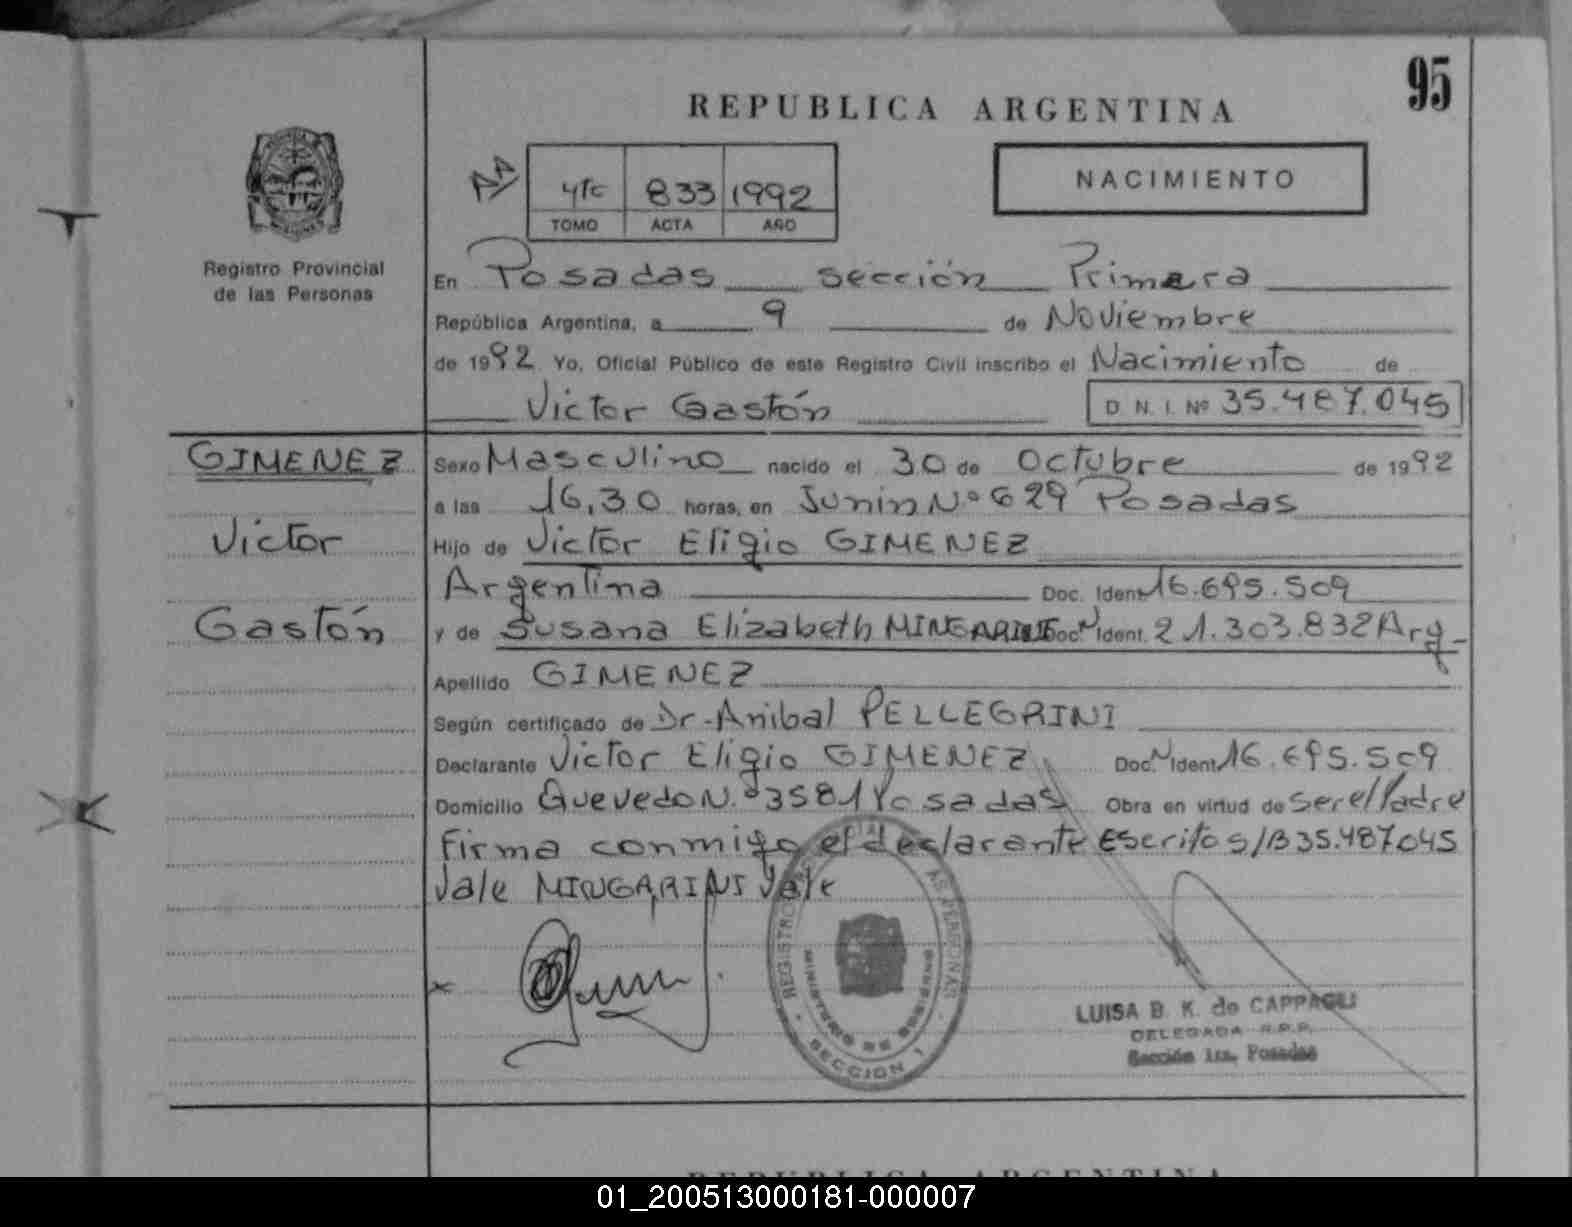 95
REPUBLICA ARGENTINA
833 1992
TOMO ACTA AÑO
NACIMIENTO
Registro Provincial
de las Personas
En Posadas sección Primera
República Argentina, a 9 de Noviembre
de 1992 Yo, Oficial Público de este Registro Civil inscribo el Nacimiento de
Victor Gastón D. N. I. Nº 35.487.045
GIMENEZ
Victor
Gastón
Sexo Masculino nacido el 30 de Octubre de 1992
a las 16,30 horas, en Junin Nº 629 Posadas
Hijo de Victor Eligio GIMENEZ
Argentina Doc. Ident. 16.695.509
y de Susana Elizabeth MINGARINI Doc. Ident. 21.303.832 Arg
Apellido GIMENEZ
Según certificado de Dr. Anibal PELLEGRINI
Declarante Victor Eligio GIMENEZ Doc. Ident. 16.695.509
Domicilio Quevedo N.º 3581 Posadas Obra en virtud de ser el Padre
Firma conmigo el declarante Escrito S/B 35.487.045
Vale MINGARINI Vale
MINISTERIO DE GOBIERNO
SECCION 1
LUISA B. K. de CAPPAGLI
DELEGADA R.P.P.
Sección 1ra. Posadas
REPUBLICA ARGENTINA
01_200513000181-000007